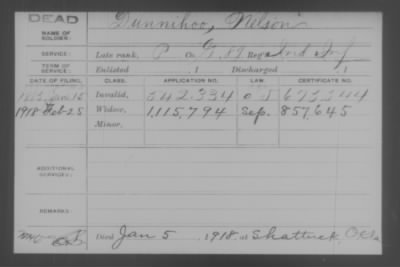 DEAD
NAME OF SOLDIER: Dunnihoo, Nelson
SERVICE: Late rank, P Co. G. 87 Reg't Ind Inf
TERM OF SERVICE: Enlisted , 1 Discharged , 1
DATE OF FILING. CLASS. APPLICATION NO. LAW. CERTIFICATE NO.
Invalid,
1918 Feb 25 Widow, 1,115,794 Sep. 857,645
Minor,
ADDITIONAL SERVICES:
REMARKS:
Died Jan 5, 1918, at Shattuck, Okla